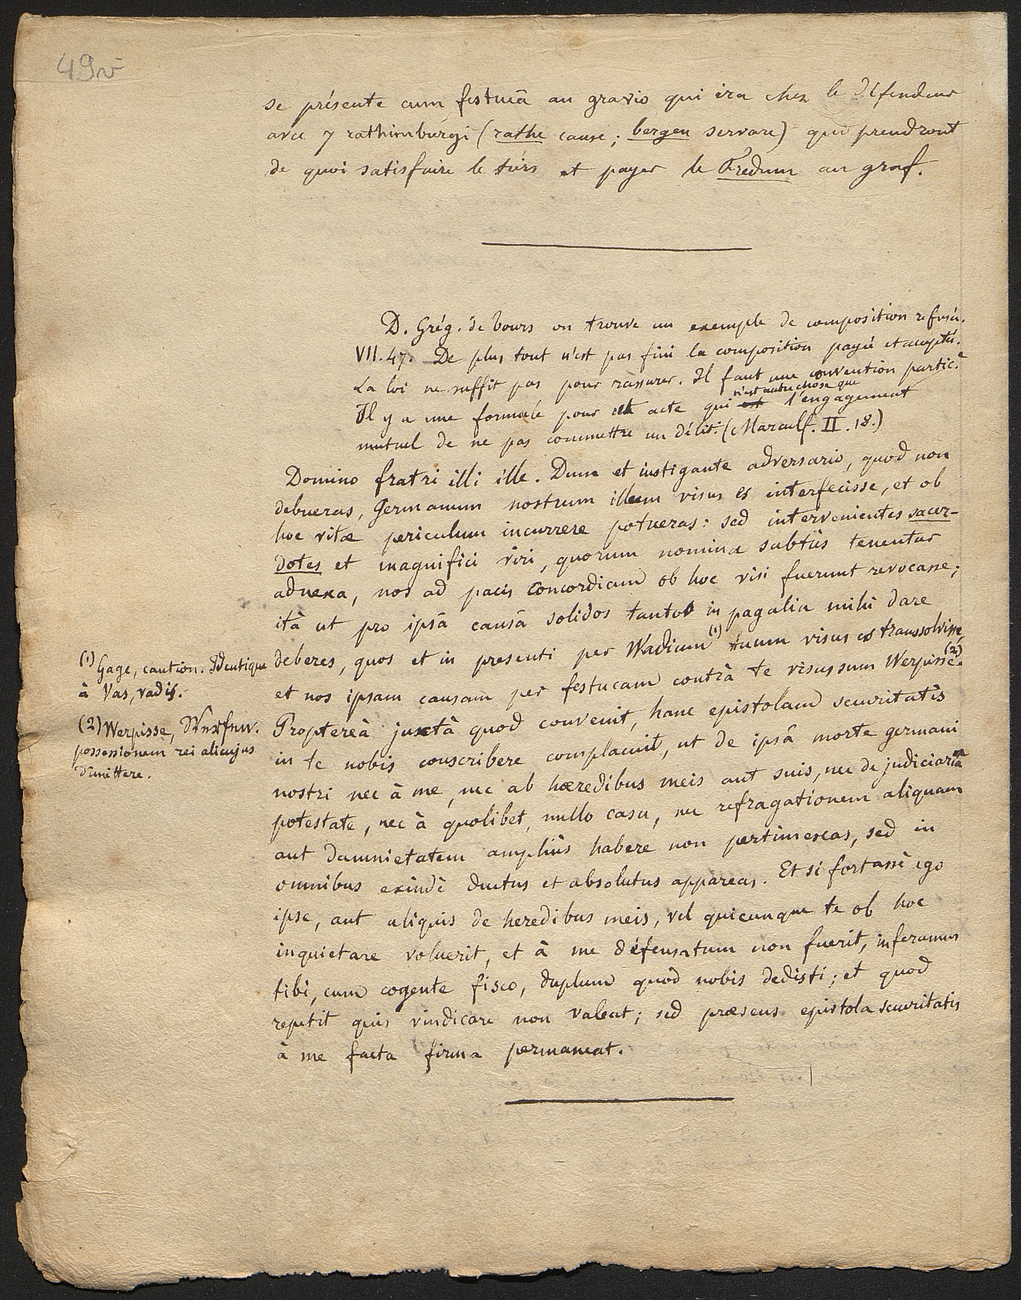 49v
se présente cum festucâ au gravio qui ira chez le défendeur
avec 7 rathimburgi (rathe cause; bergen servare) qui prendront
de quoi satisfaire le tiers et payer le Fredum au graf.
D. Grég. de Tours on trouve un exemple de composition refusée.
VII. 47. De plus tout n'est pas fini la composition payée et acceptée.
La loi ne suffit pas pour rassurer. Il faut une convention partic.e
Il y a une formule pour cet acte qui est n'est autre chose que l'engagement
mutuel de ne pas commettre un délit. (Marculf. II. 18.)
Domino fratri illi ille. Dum et instigante adversario, quod non
debueras, Germanum nostrum illum visus es interfecisse, et ob
hoc vitæ periculum incurrere potueras: sed intervenientes sacer-
dotes et magnifici viri, quorum nomina subtùs tenentur
adnexa, nos ad pacis concordiam ob hoc visi fuerunt revocasse;
ità ut pro ipsâ causâ solidos tantos in pagalia mihi dare
deberes, quos et in presenti per Wadium (1) tuum visus es transsolvisse,
et nos ipsam causam per festucam contrà te visus sum Werpisse (2).
Proptereà juxtà quod convenit, hanc epistolam securitatis
in te nobis conscribere complacuit, ut de ipsâ morte germani
nostri nec à me, nec ab hæredibus meis aut suis, nec de judiciariâ
potestate, nec à quolibet, nullo casu, nec refragationem aliquam
aut damnietatem ampliùs habere non pertimescas, sed in
omnibus exindè ductus et absolutus appareas. Et si fortassè ego
ipse, aut aliquis de heredibus meis, vel quicunque te ob hoc
inquietare voluerit, et à me defensatum non fuerit, inferamus
tibi, cum cogente fisco, duplum quod nobis dedisti; et quod
repetit quis vindicare non valeat; sed præsens epistola securitatis
à me facta firma permaneat.
(1) Gage, caution. Identique
à Vas, vadis.
(2) Werpisse,
possessionem rei alicujus
dimittere.